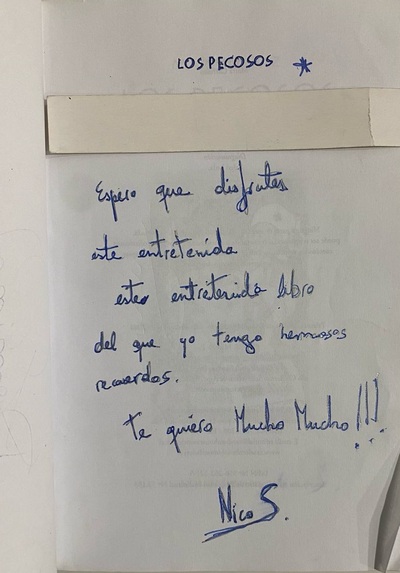 LOS PECOSOS *
Espero que disfrutes
este entretenida
este entretenida libro
del que yo tengo hermosos
recuerdos.
Te quiero Mucho Mucho!!!
Nico S.